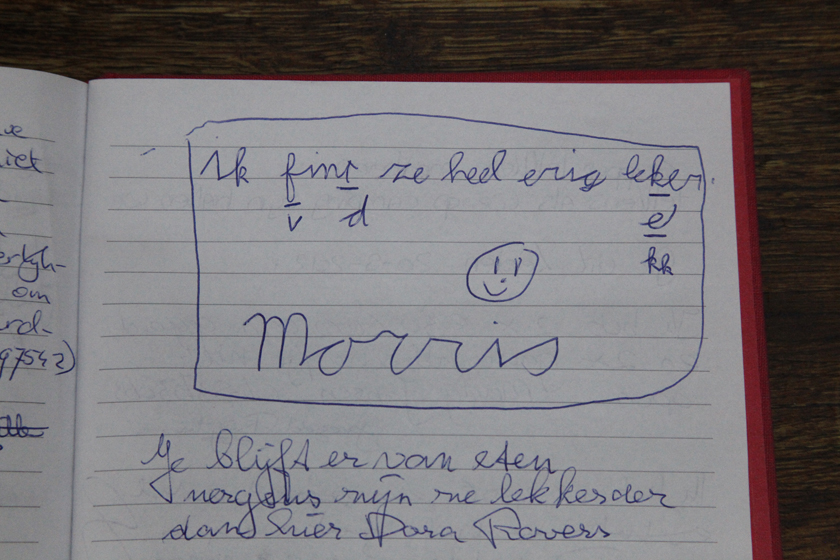 Ik fint ze heel erig leker.
v d e
kk
Morris
Je blijft er van eten
nergens zijn ze lekkerder
dan hier Dora Rovers
ve
iet
om
rd-
97542)